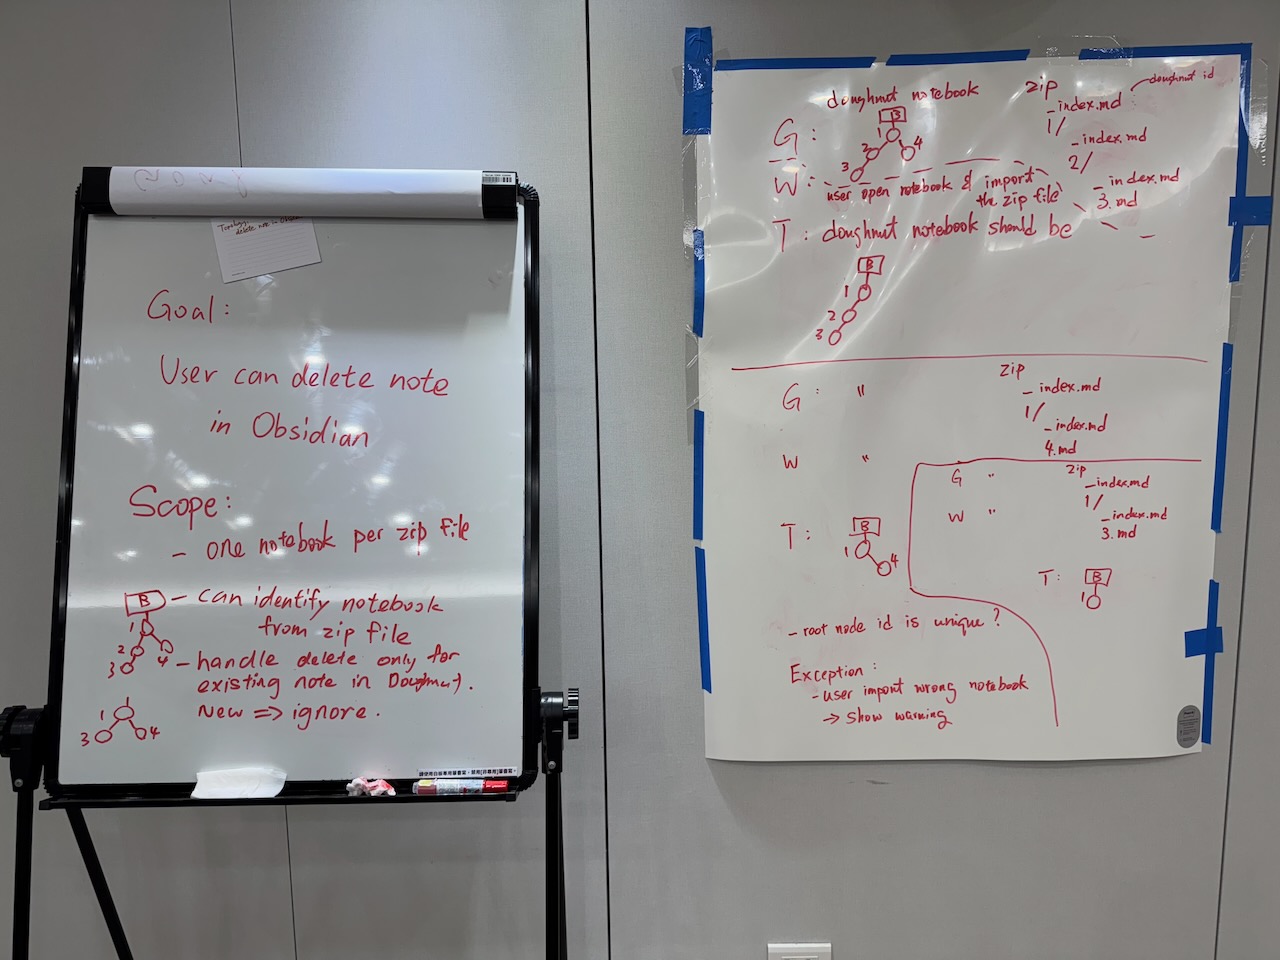 delete note in
Goal:
User can delete note
in Obsidian
Scope:
- one notebook per zip file
B
1
2
3
4
- can identify notebook
from zip file
- handle delete only for
existing note in Doughnut.
New => ignore.
1
3
4
doughnut notebook
G:
B
1
2
3
4
zip
_index.md
doughnut id
1/
_index.md
2/
_index.md
3.md
W:
user open notebook & import
the zip file
T: doughnut notebook should be
B
1
2
3
G: "
zip
_index.md
1/
_index.md
4.md
W "
T:
B
1
4
G "
zip
_index.md
1/
_index.md
3.md
W "
T:
B
1
- root node id is unique?
Exception:
- user import wrong notebook
→ show warning